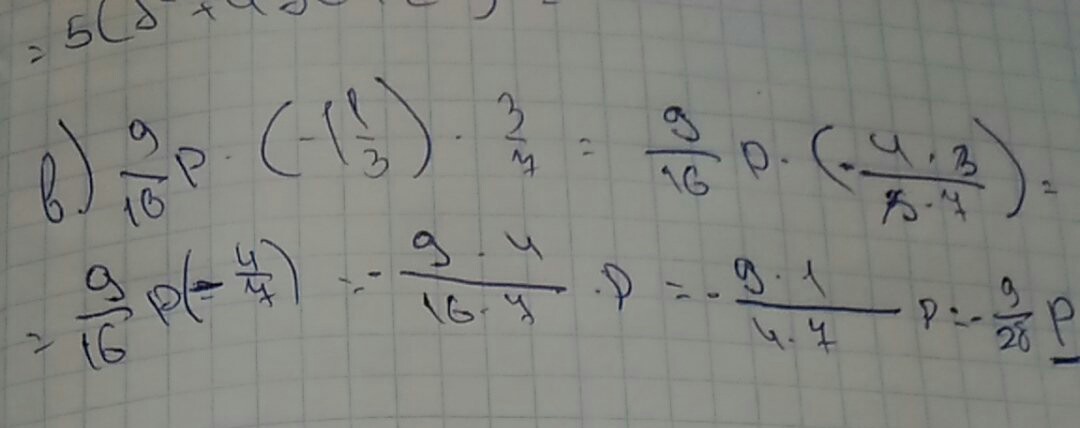 = 5(
в) 9/16 p · (-1 1/3) · 3/7 = 9/16 p · (- 4 · 3 / 3 · 7) =
= 9/16 p(- 4/7) = - 9 · 4 / 16 · 7 · p = - 9 · 1 / 4 · 7 p = - 9/28 p